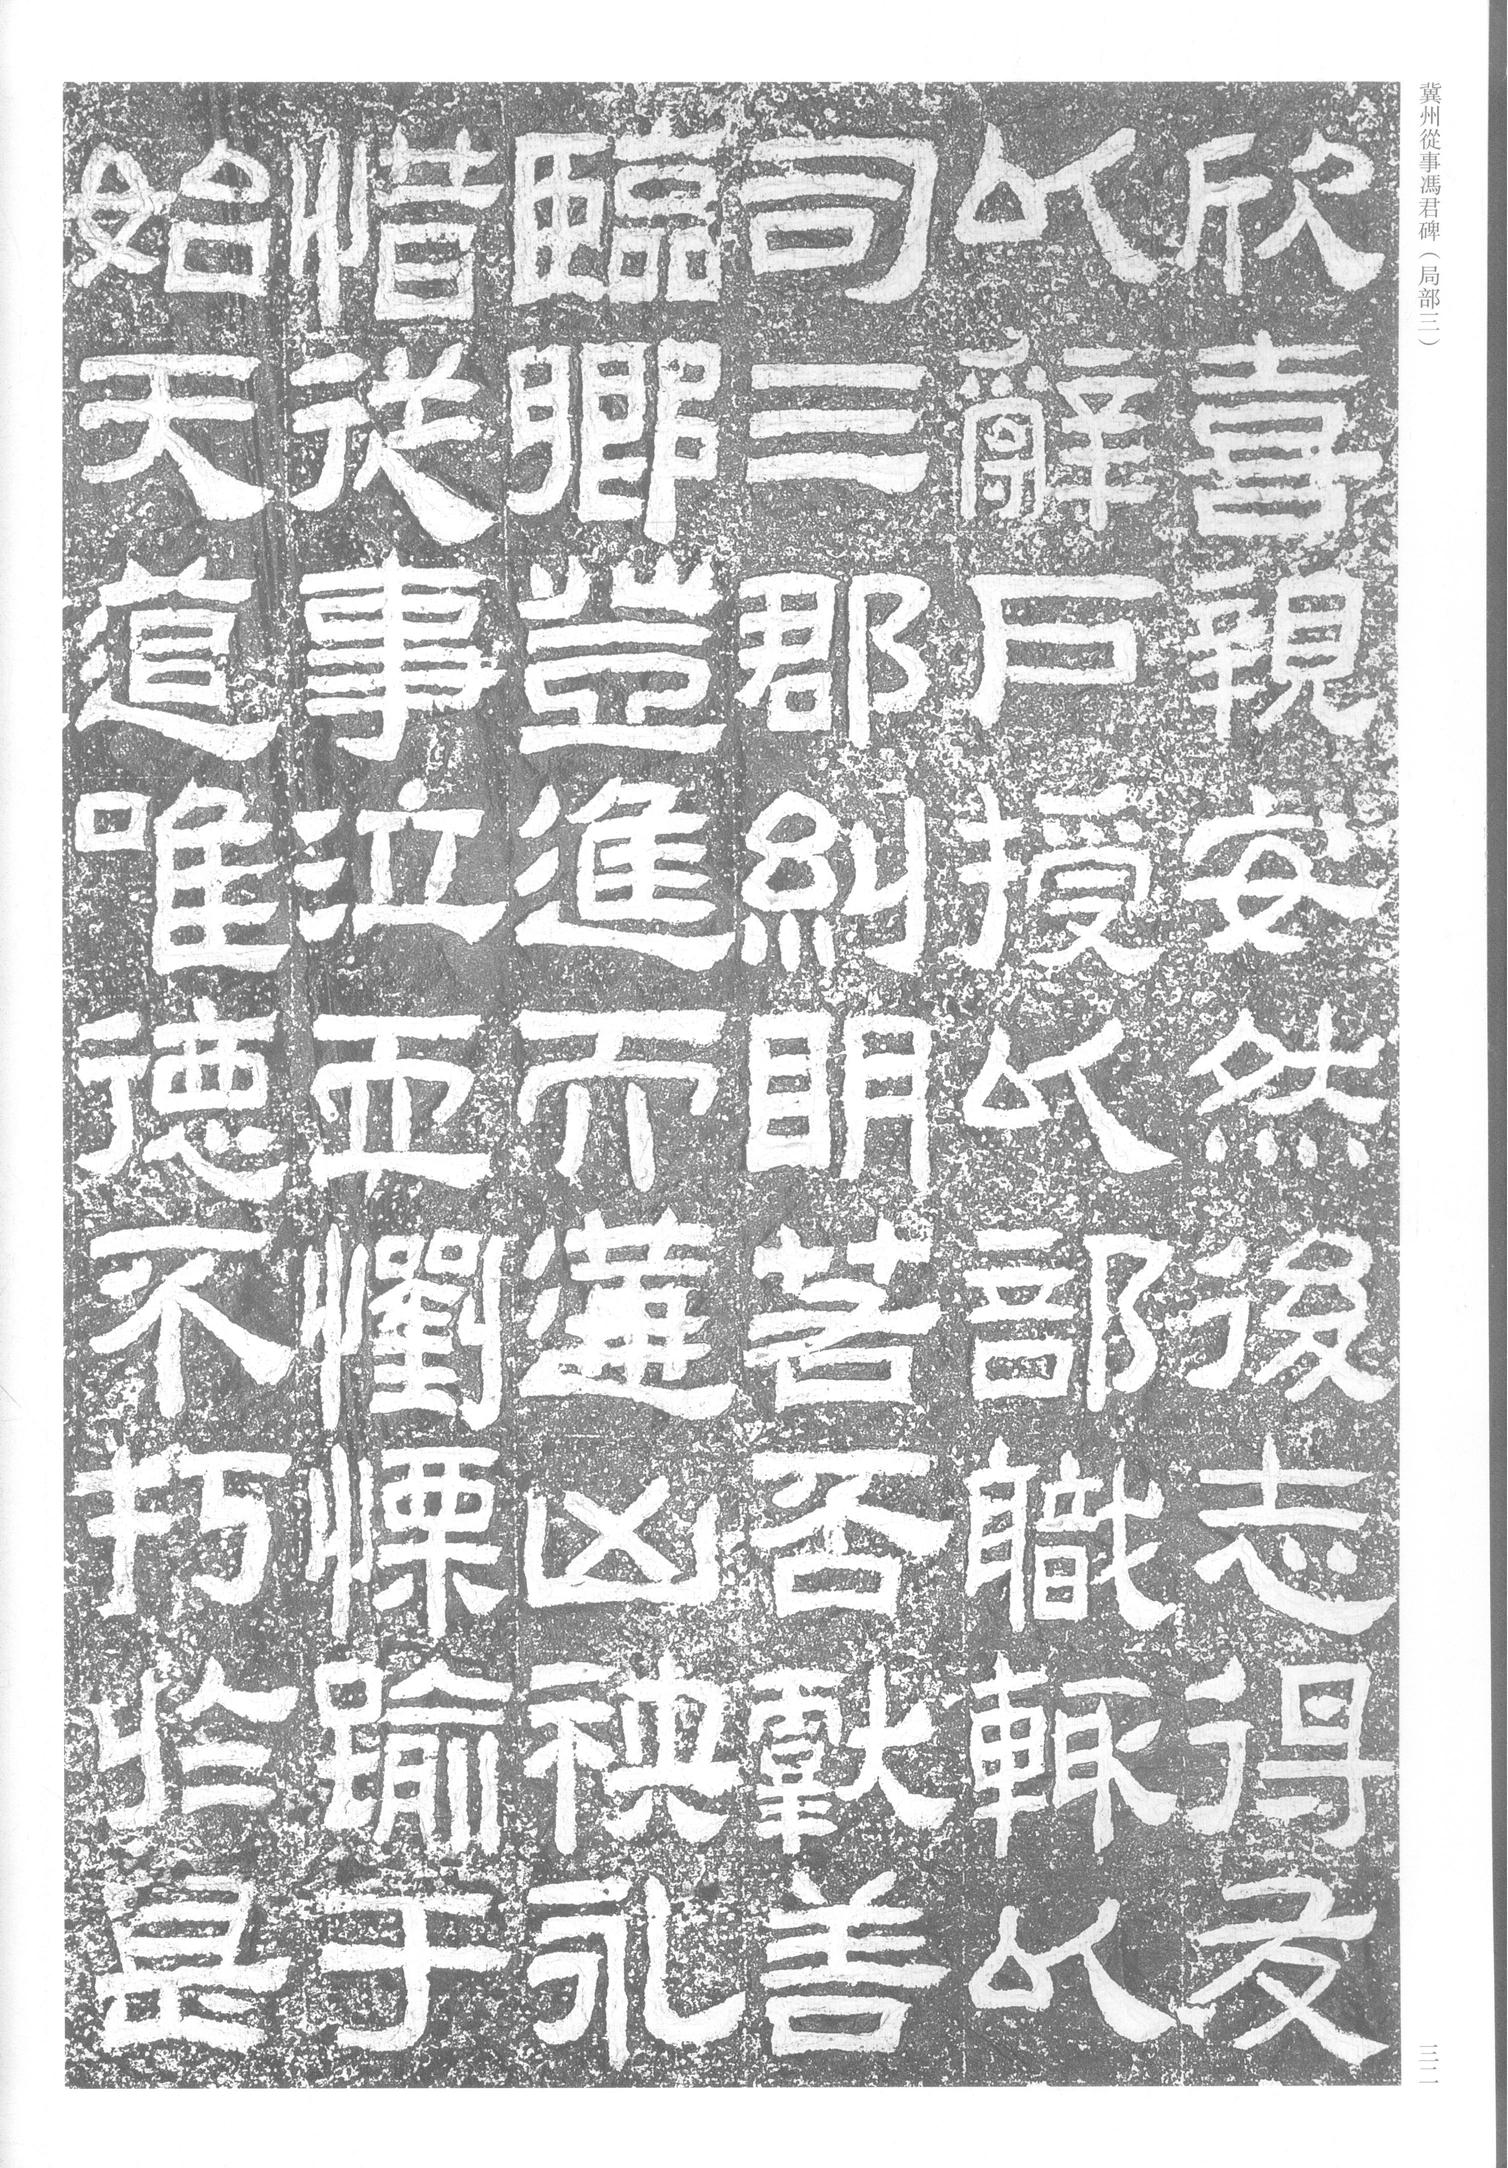 冀州從事馮君碑（局部三）
欣喜親安然後志得友
以辭戶授以部職輒以
司三郡糾明若否獻善
臨鄉豈進而遘凶袂永
惜從事泣而懼慄踰于
始天道唯德不朽於是
三二一